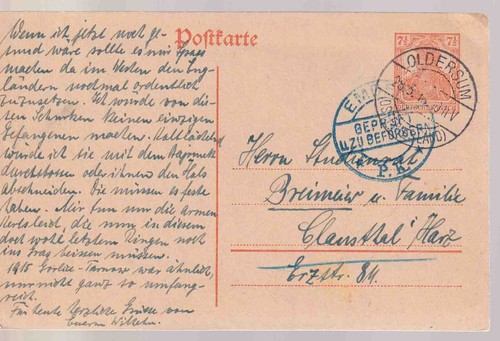 Wenn ich jetzt noch ge-
sund wäre sollte es mir Spass
machen da im Westen den Eng-
ländern nochmal ordentlich
zuzusetzen. Ich würde von die-
sen Schurken keinen einzigen
Gefangenen machen. Kaltlächelnd
würde ich sie mit dem Bajonett
durchstossen oder ihnen den Hals
abschneiden. Die müssen es feste
haben. Mir tun nur die armen
Kerls leid, die nun in diesem
doch wohl letzten Ringen noch
ins Gras beissen müssen.
1915 Gorlice-Tarnow war ähnlich,
nur nicht ganz so umfang-
reich.
Für heute herzliche Grüsse von
Eurem Wilhelm.
Postkarte
7½ 7½
OLDERSUM
EMDEN
GEPRÜFT
ZU BEFÖRDERN
F.
P.K.
Herrn Studienrat
Breimeier u. Familie
Clausthal i/Harz
Erzstr. 84.